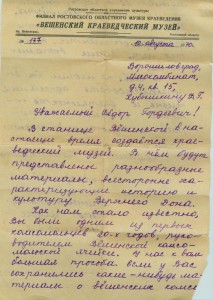 ФИЛИАЛ РОСТОВСКОГО ОБЛАСТНОГО МУЗЕЯ КРАЕВЕДЕНИЯ
"ВЕШЕНСКИЙ КРАЕВЕДЧЕСКИЙ МУЗЕЙ"
августа
Ворошиловград,
д. 4, кв. 15,
Уважаемый Фёдор Гордеевич!
В станице Вёшенской в на-
стоящее время создаётся крае-
ведческий музей. В нём будут
представлены разнообразные
материалы, всесторонне ха-
рактеризующие историю и
культуру Верхнего Дона.
Как нам стало известно,
Вы были одним из первых
комсомольцев 20-х годов, руко-
водителем Вёшенской комсо-
мольской ячейки. У нас к Вам
большая просьба: если у Вас
сохранились какие-нибудь ма-
териалы о вёшенских комсо-